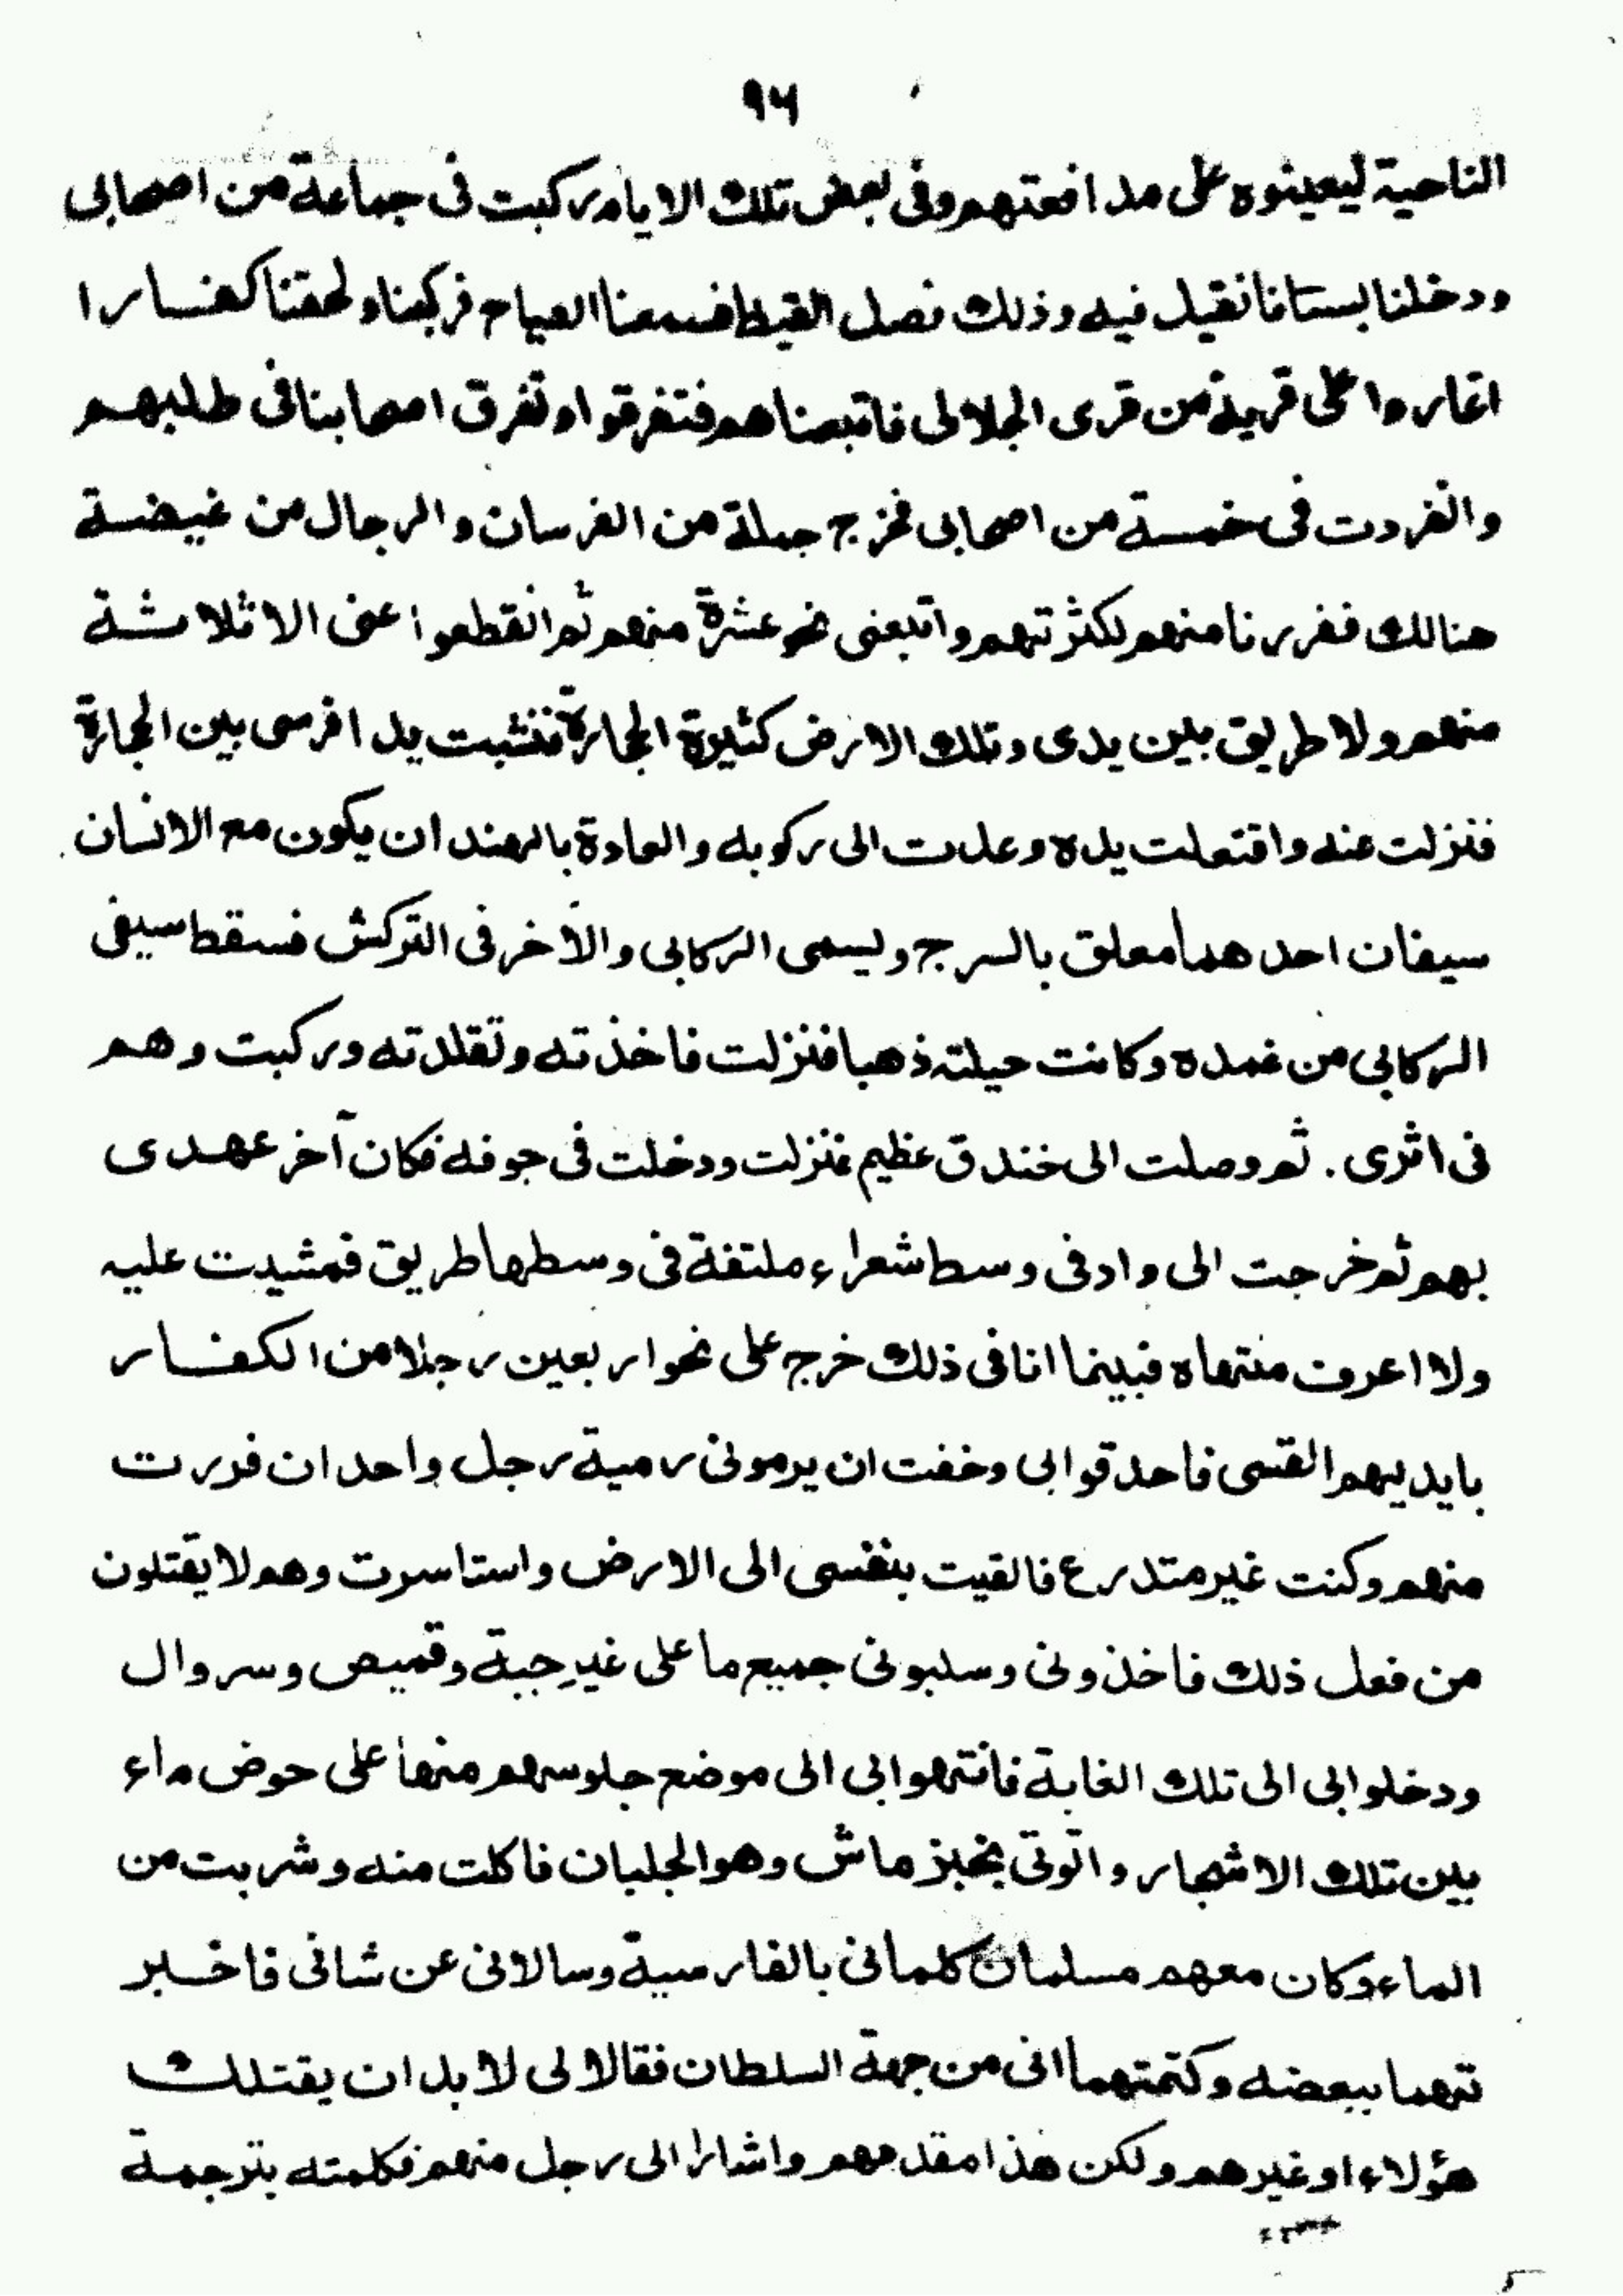 ٩٦
الناحية ليعينوه على مدافعتهم وفى بعض تلك الايام ركبت فى جماعة من اصحابى
ودخلنا بستانا نقيل فيه وذلك فصل القيظ فسمعنا الصياح فركبنا ولحقنا كفارا
اغاروا على قرية من قرى الجلالى فاتبعناهم فتفرقوا وتفرق اصحابنا فى طلبهم
وانفردت فى خمسة من اصحابى فخرج جملة من الفرسان والرجال من غيضة
هنالك ففررنا منهم لكثرتهم واتبعنى نحو عشرة منهم ثم انقطعوا عنى الا ثلاثة
منهم ولا طريق بين يدى وتلك الارض كثيرة الحجارة فنشبت يدا فرسى بين الحجارة
فنزلت عنه واقتعلت يده وعدت الى ركوبه والعادة بالهند ان يكون مع الانسان
سيفان احدهما معلق بالسرج ويسمى الركابى والآخر فى التركش فسقط سيفى
الركابى من غمده وكانت حيلته ذهبا فنزلت فاخذته وتقلدته وركبت وهم
فى اثرى. ثم وصلت الى خندق عظيم فنزلت ودخلت فى جوفه فكان آخر عهدى
بهم ثم خرجت الى واد فى وسط شعراء ملتفة فى وسطها طريق فمشيت عليه
ولا اعرف منتهاه فبينما انا فى ذلك خرج على نحو اربعين رجلا من الكفار
بايديهم القسى فاحدقوا بى وخفت ان يرمونى رمية رجل واحد ان فررت
منهم وكنت غير متدرع فالقيت بنفسى الى الارض واستاسرت وهم لا يقتلون
من فعل ذلك فاخذونى وسلبونى جميع ما على غير جبة وقميص وسروال
ودخلوا بى الى تلك الغابة فانتهوا بى الى موضع جلوسهم منها على حوض ماء
بين تلك الاشجار واتونى بخبز ماش وهو الجلبان فاكلت منه وشربت من
الماء وكان معهم مسلمان كلمانى بالفارسية وسالانى عن شانى فاخبر
تهما ببعضه وكتمتهما انى من جهة السلطان فقالا لى لا بد ان يقتلك
هؤلاء او غيرهم ولكن هذا مقدمهم واشارا الى رجل منهم فكلمته بترجمة